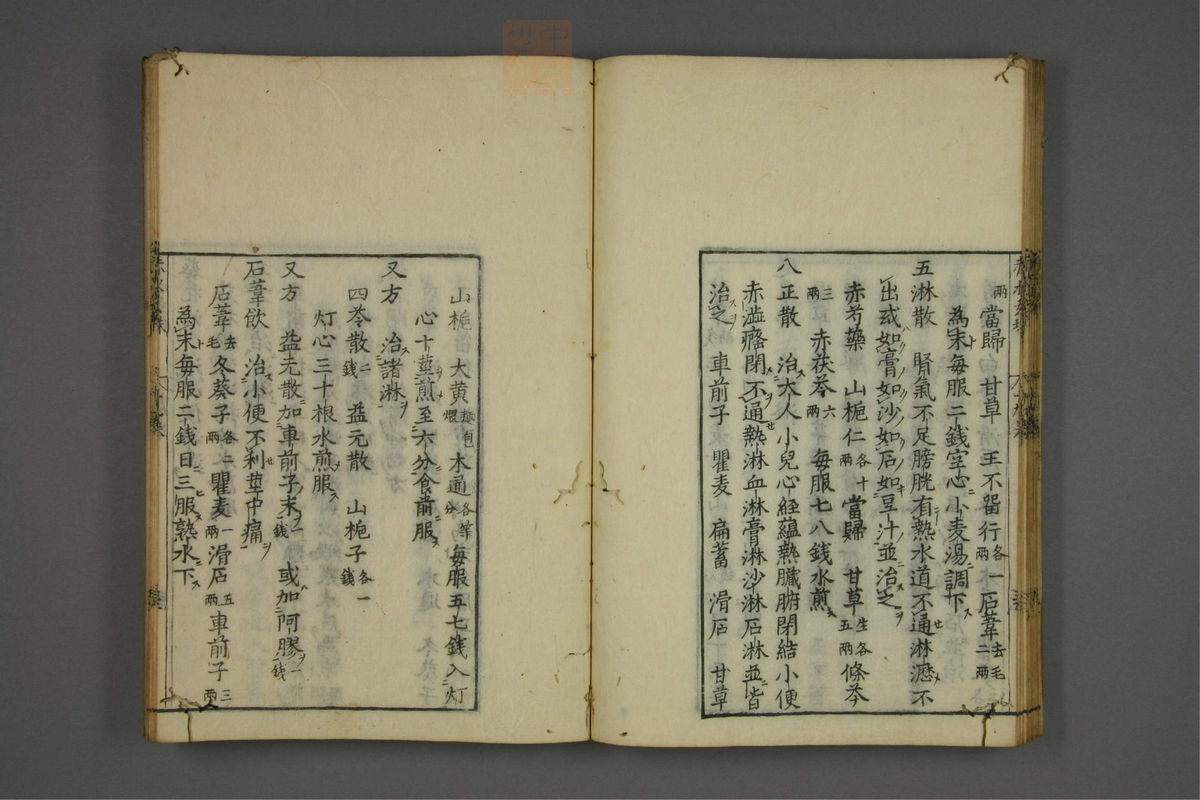 兩當歸 甘草 王不畱行各一兩石葦去毛二兩
為末毎服二銭空心小麦湯調下
五淋散 腎氣不足膀胱有熱水道不通淋瀝不
出或如膏如沙如石如豆汁並治之
赤芍藥 山梔仁各十兩當歸 甘草生各五兩條芩
三兩 赤茯苓六兩 毎服七八銭水煎
八正散 治大人小兒心経蘊熱臓腑閉結小便
赤澁癃閉不通熱淋血淋膏淋沙淋石淋並皆
治之 車前子 瞿麦 扁蓄 滑石 甘草
山梔 大黄麺包煨 木通各等分 毎服五七銭入灯
心十莖煎至六分食前服
又方 治諸淋
四苓散二銭 益元散 山梔子各一銭
灯心三十根水煎服
又方 益元散加車前子末一銭 或加阿膠一銭
石葦飲 治小便不利莖中痛
石葦去毛冬葵子各二兩瞿麦一兩滑石五兩車前子三兩
為末毎服二銭日三服熱水下